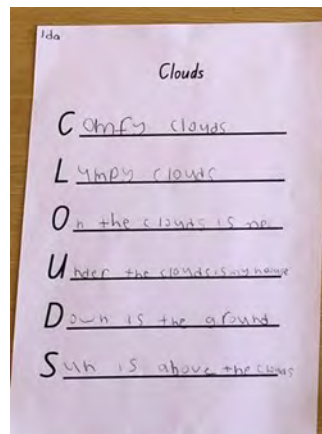 Ida
Clouds
Comfy clouds
Lympy clouds
On the clouds is me
Under the clouds is my house
Down is the ground
Sun is above the clouds